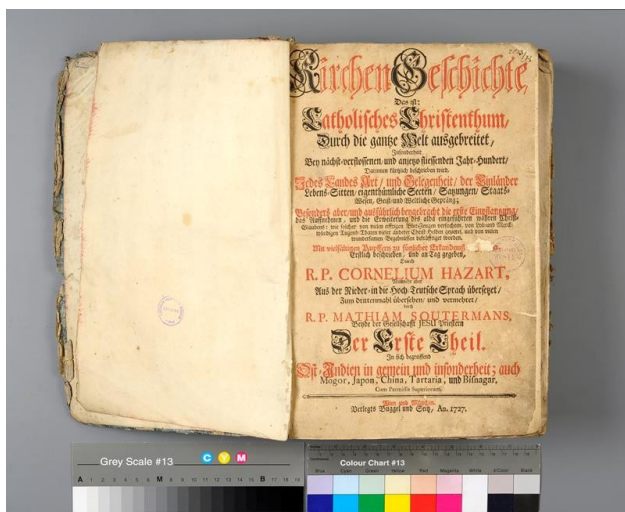 Kirchen Geschichte
Das ist:
Catholisches Christenthum,
Durch die gantze Welt ausgebreitet,
Insonderheit
Bey nächst-verflossenen, und anjetzo fliessenden Jahr-Hundert/
Darinnen kürtzlich beschrieben wird,
Jedes Landes Art/ und Gelegenheit/ der Einländer
Lebens-Sitten/ eigenthümliche Secten/ Satzungen/ Staats-
Wesen, Geist- und Weltliche Gepräng;
Besonders aber/ und ausführlich beygebracht die erste Einpflantzung/
das Aufnehmen, und die Erweiterung des alda eingeführten wahren Christ-
Glaubens: wie solcher von vielen
würdigen Tugend-Thaten vieler anderer Christ-Helden gezieret, und von vielen
wundersamen Begebenheiten bekräfftiget worden.
Mit vielfältigen Kupffern zu
Erstlich beschrieben, und an Tag gegeben,
Durch
R. P. CORNELIUM HAZART,
Aus der Nieder- in die Hoch-Teutsche Sprach übersetzet/
Zum drittenmahl übersehen/ und vermehret/
durch
R. P. MATHIAM SOUTERMANS,
Beyde der Gesellschafft JESU Priestern
Der Erste Theil.
In sich begreiffend
Ost-Indien in gemein und insonderheit; auch
Mogor, Japon, China, Tartaria, und Bisnagar,
Cum Permissu Superiorum.
Wien und München.
Verlegts Buggel und Seitz, An. 1727.
Grey Scale #13
C Y M
A 1 2 3 4 5 6 M 8 9 10 11 12 13 14 15 B 17 18 19
Colour Chart #13
Blue Cyan Green Yellow Red Magenta White 3/Color Black